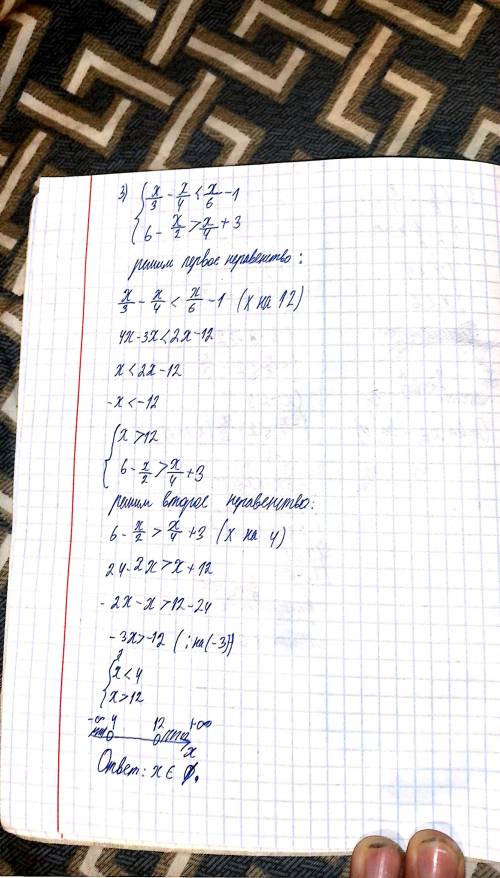 3) { x/3 - x/4 < x/6 - 1
6 - x/2 > x/4 + 3
решим первое неравенство:
x/3 - x/4 < x/6 - 1 (x на 12)
4x - 3x < 2x - 12
x < 2x - 12
-x < -12
{ x > 12
6 - x/2 > x/4 + 3
решим второе неравенство:
6 - x/2 > x/4 + 3 (x на 4)
24 - 2x > x + 12
- 2x - x > 12 - 24
- 3x > -12 (: на (-3))
{ x < 4
x > 12
-∞ 4 12 +∞
x
Ответ: x ∈ ∅.